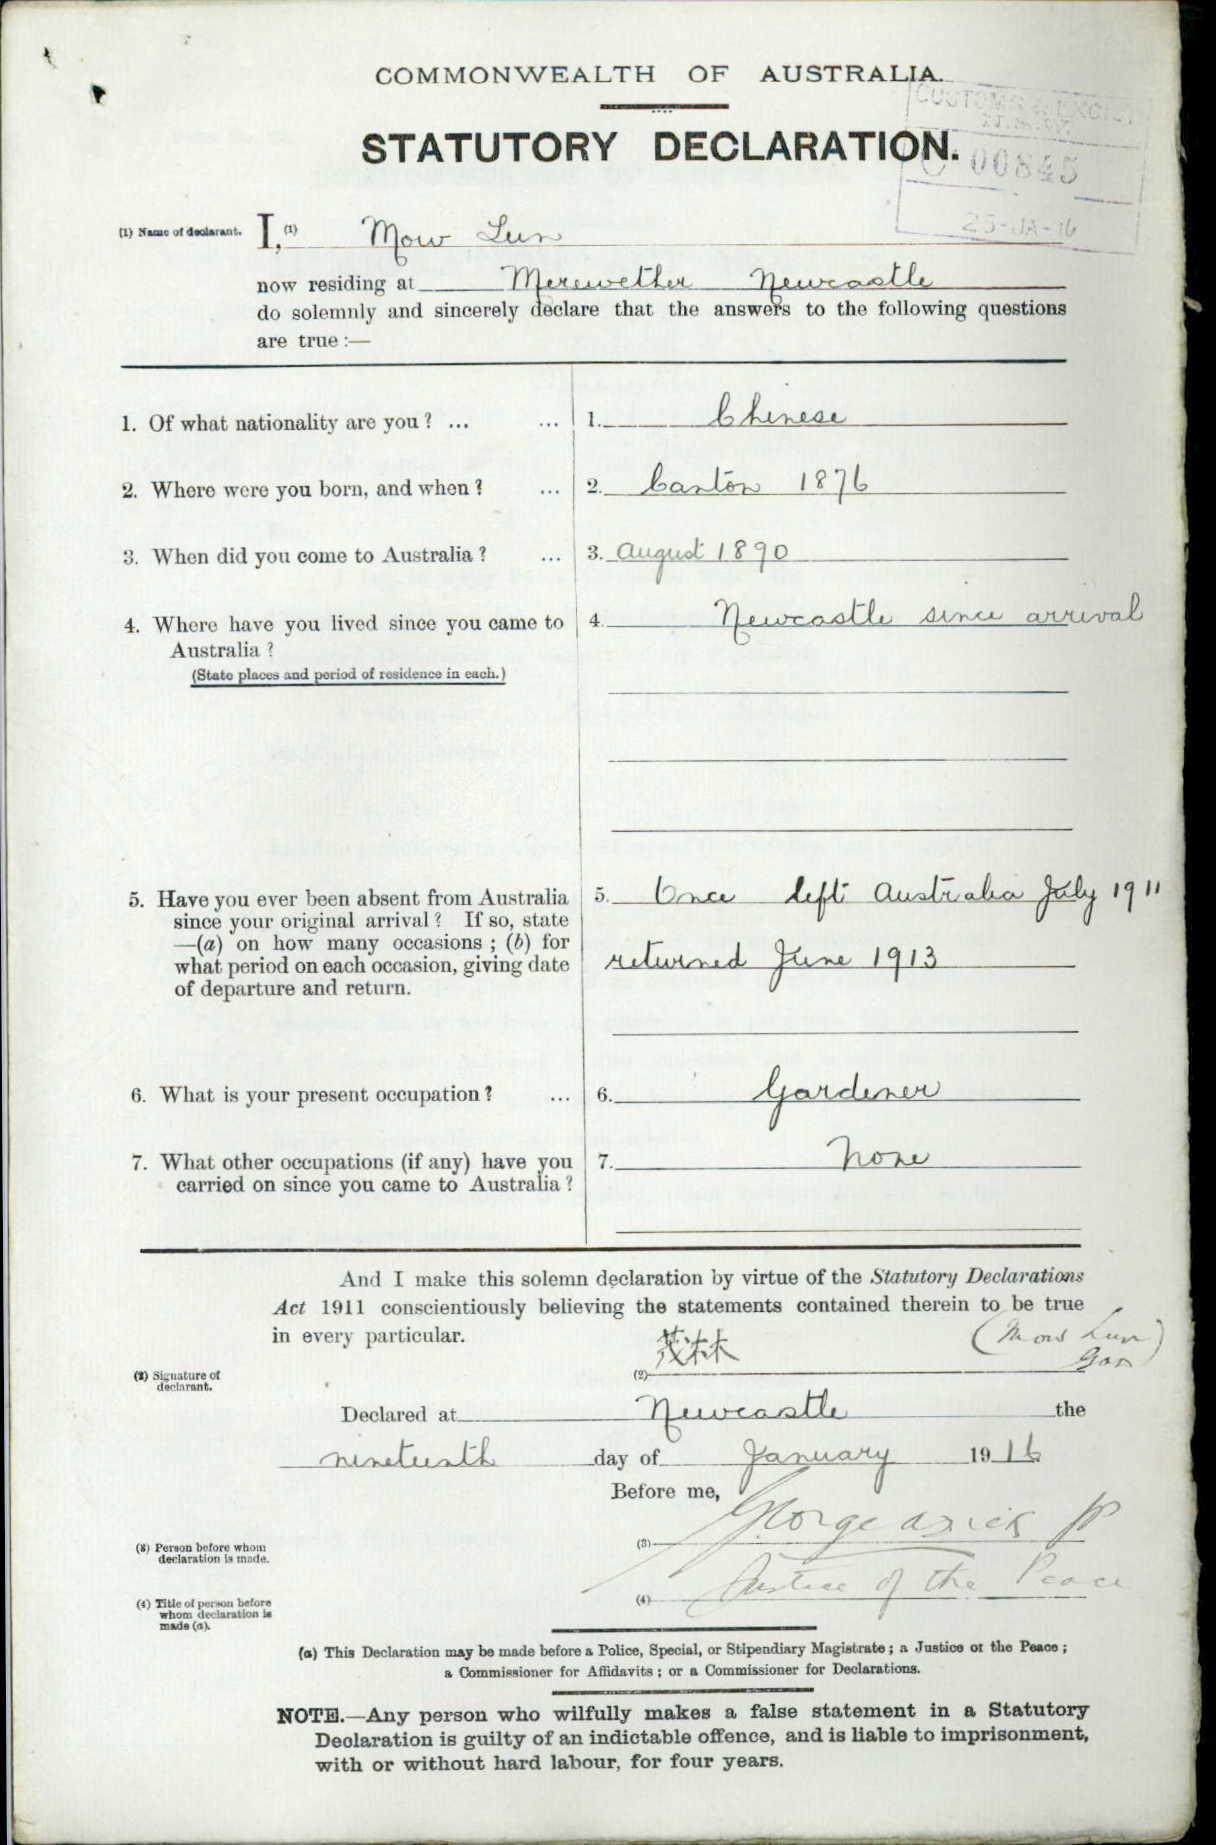 COMMONWEALTH OF AUSTRALIA.
CUSTOMS & EXCISE
STATUTORY DECLARATION.
C 00845
25-JA-16
(1) Name of declarant. I, (1) Mow Lun
now residing at Merewether Newcastle
do solemnly and sincerely declare that the answers to the following questions
are true :—
1. Of what nationality are you ? ... ... 1. Chinese
2. Where were you born, and when ? ... 2. Canton 1876
3. When did you come to Australia ? ... 3. August 1890
4. Where have you lived since you came to 4. Newcastle since arrival
Australia ?
(State places and period of residence in each.)
5. Have you ever been absent from Australia 5. Once left Australia July 1911
since your original arrival ? If so, state
—(a) on how many occasions ; (b) for
what period on each occasion, giving date returned June 1913
of departure and return.
6. What is your present occupation ? ... 6. Gardener
7. What other occupations (if any) have you 7. None
carried on since you came to Australia ?
And I make this solemn declaration by virtue of the Statutory Declarations
Act 1911 conscientiously believing the statements contained therein to be true
in every particular.
茂林 (Mow Lun)
(2) Signature of declarant. (2)
Declared at Newcastle the
nineteenth day of January 1916
Before me,
(3) Person before whom declaration is made. (3) George JP
(4) Title of person before whom declaration is made (a). (4) Justice of the Peace
(a) This Declaration may be made before a Police, Special, or Stipendiary Magistrate ; a Justice of the Peace ;
a Commissioner for Affidavits ; or a Commissioner for Declarations.
NOTE.—Any person who wilfully makes a false statement in a Statutory
Declaration is guilty of an indictable offence, and is liable to imprisonment,
with or without hard labour, for four years.